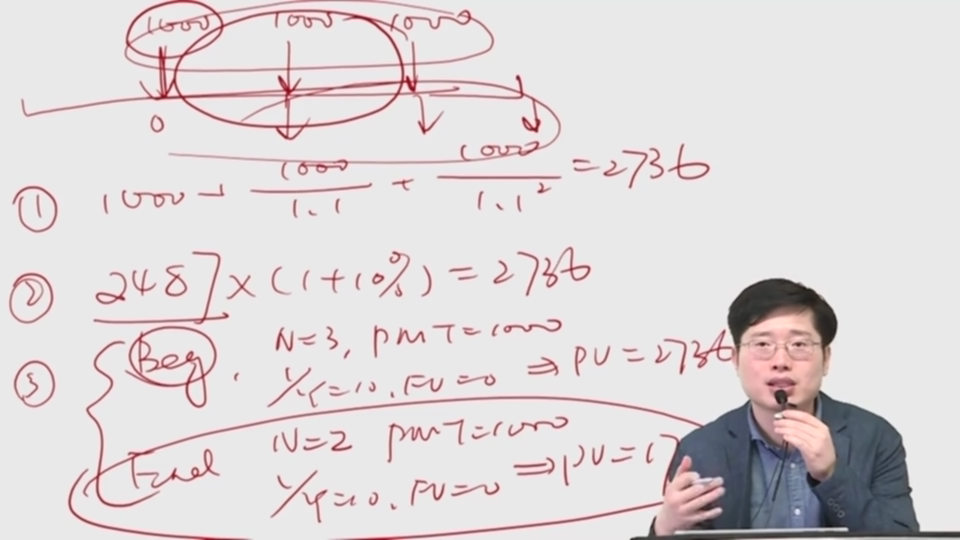 1000 1000 1000
0
① 1000 + 1000/1.1 + 1000/1.1² = 2736
② 2487 × (1+10%) = 2736
③ Beg, N=3, PMT=1000
I/Y=10, FV=0 ⇒ PV=2736
End N=2 PMT=1000
I/Y=10, FV=0 ⇒ PV=17